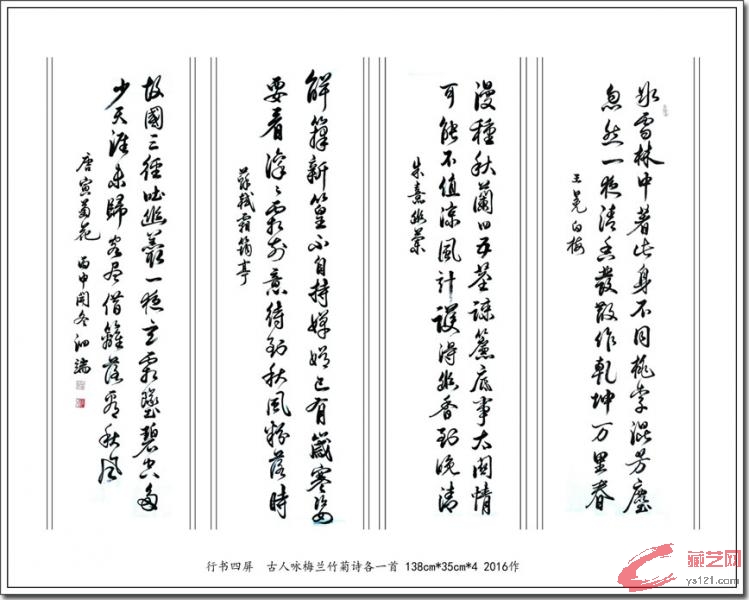 冰雪林中著此身不同桃李混芳塵
忽然一夜清香發散作乾坤万里春
王冕白梅
漫種秋蘭四五茎疎簾底事太関情
可能不值涼風計護得幽香到晚清
朱熹幽蘭
解籜新篁不自持嬋娟已有歲寒姿
要看凜〻霜前意待到秋風粉落時
蘇軾霜筠亭
故國三徑吐幽叢一夜玄霜墜碧空多
少天涯未歸客尽借籬落看秋風
唐寅菊花 丙申
行书四屏 古人咏梅兰竹菊诗各一首 138cm*35cm*4 2016作
藏艺网
ys121.com